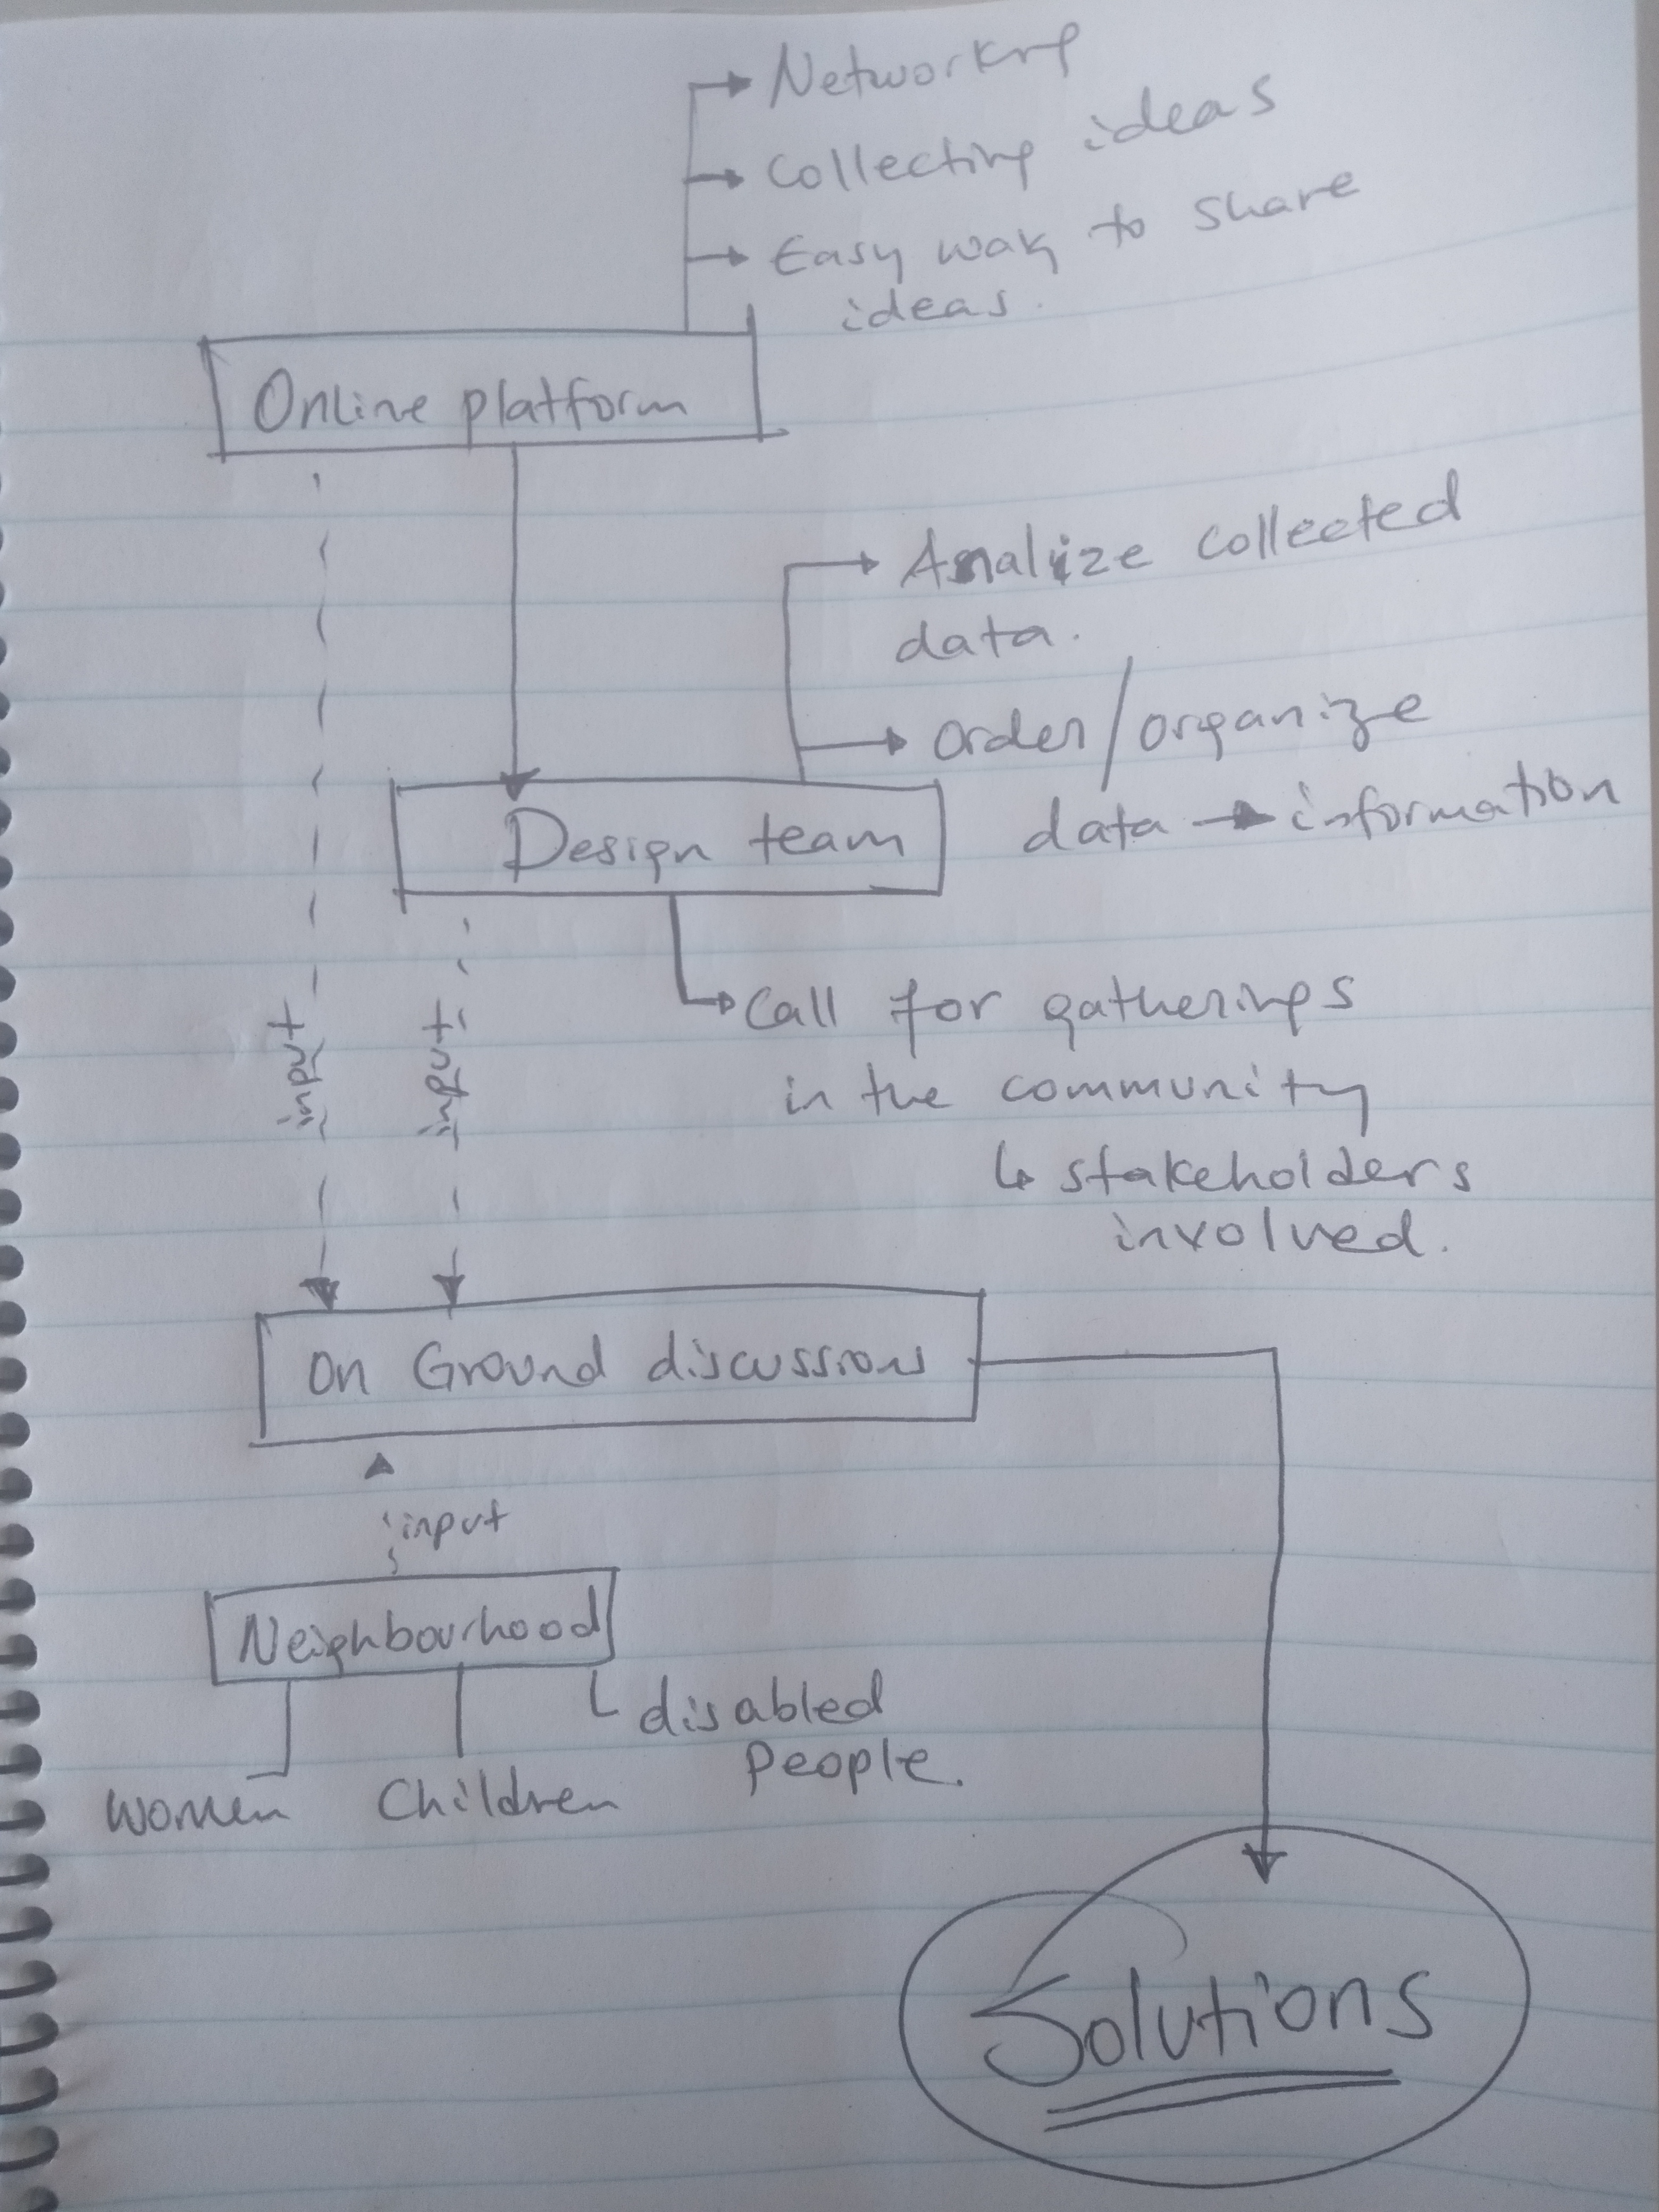 Networking
Collecting ideas
Easy way to share
ideas.
Online platform
Analize collected
data.
Order/organize
data → information
Design team
input
input
Call for gatherings
in the community
↳ stakeholders
involved.
On Ground discussions
input
Neighbourhood
disabled
People.
Women Children
Solutions